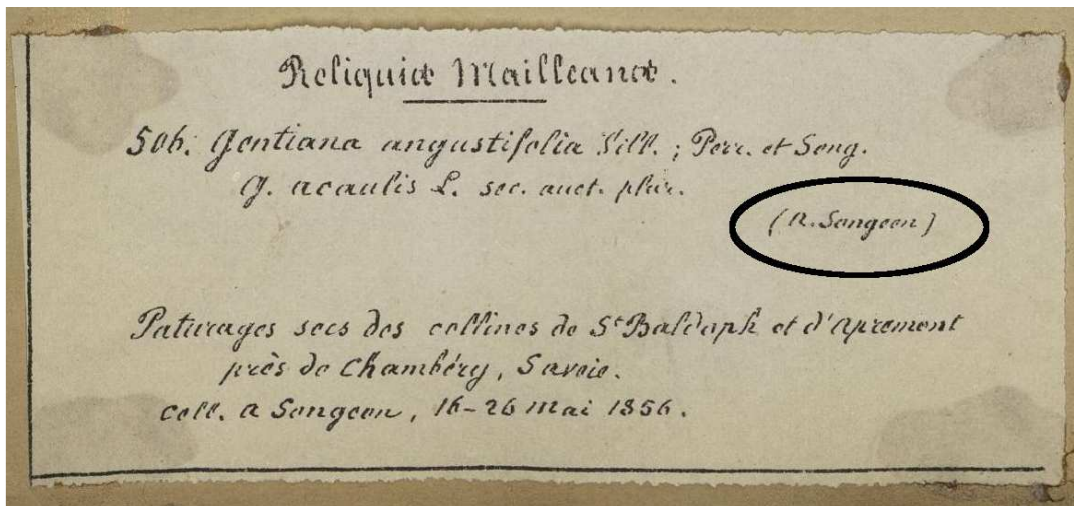 Reliquiæ Mailleanæ.
506. Gentiana angustifolia Vill.; Perr. et Song.
G. acaulis L. sec. auct. plur.
(A. Songeon)
Paturages secs des collines de St Baldoph et d'Apremont
près de Chambéry, Savoie.
coll. A Songeon, 16-26 mai 1856.